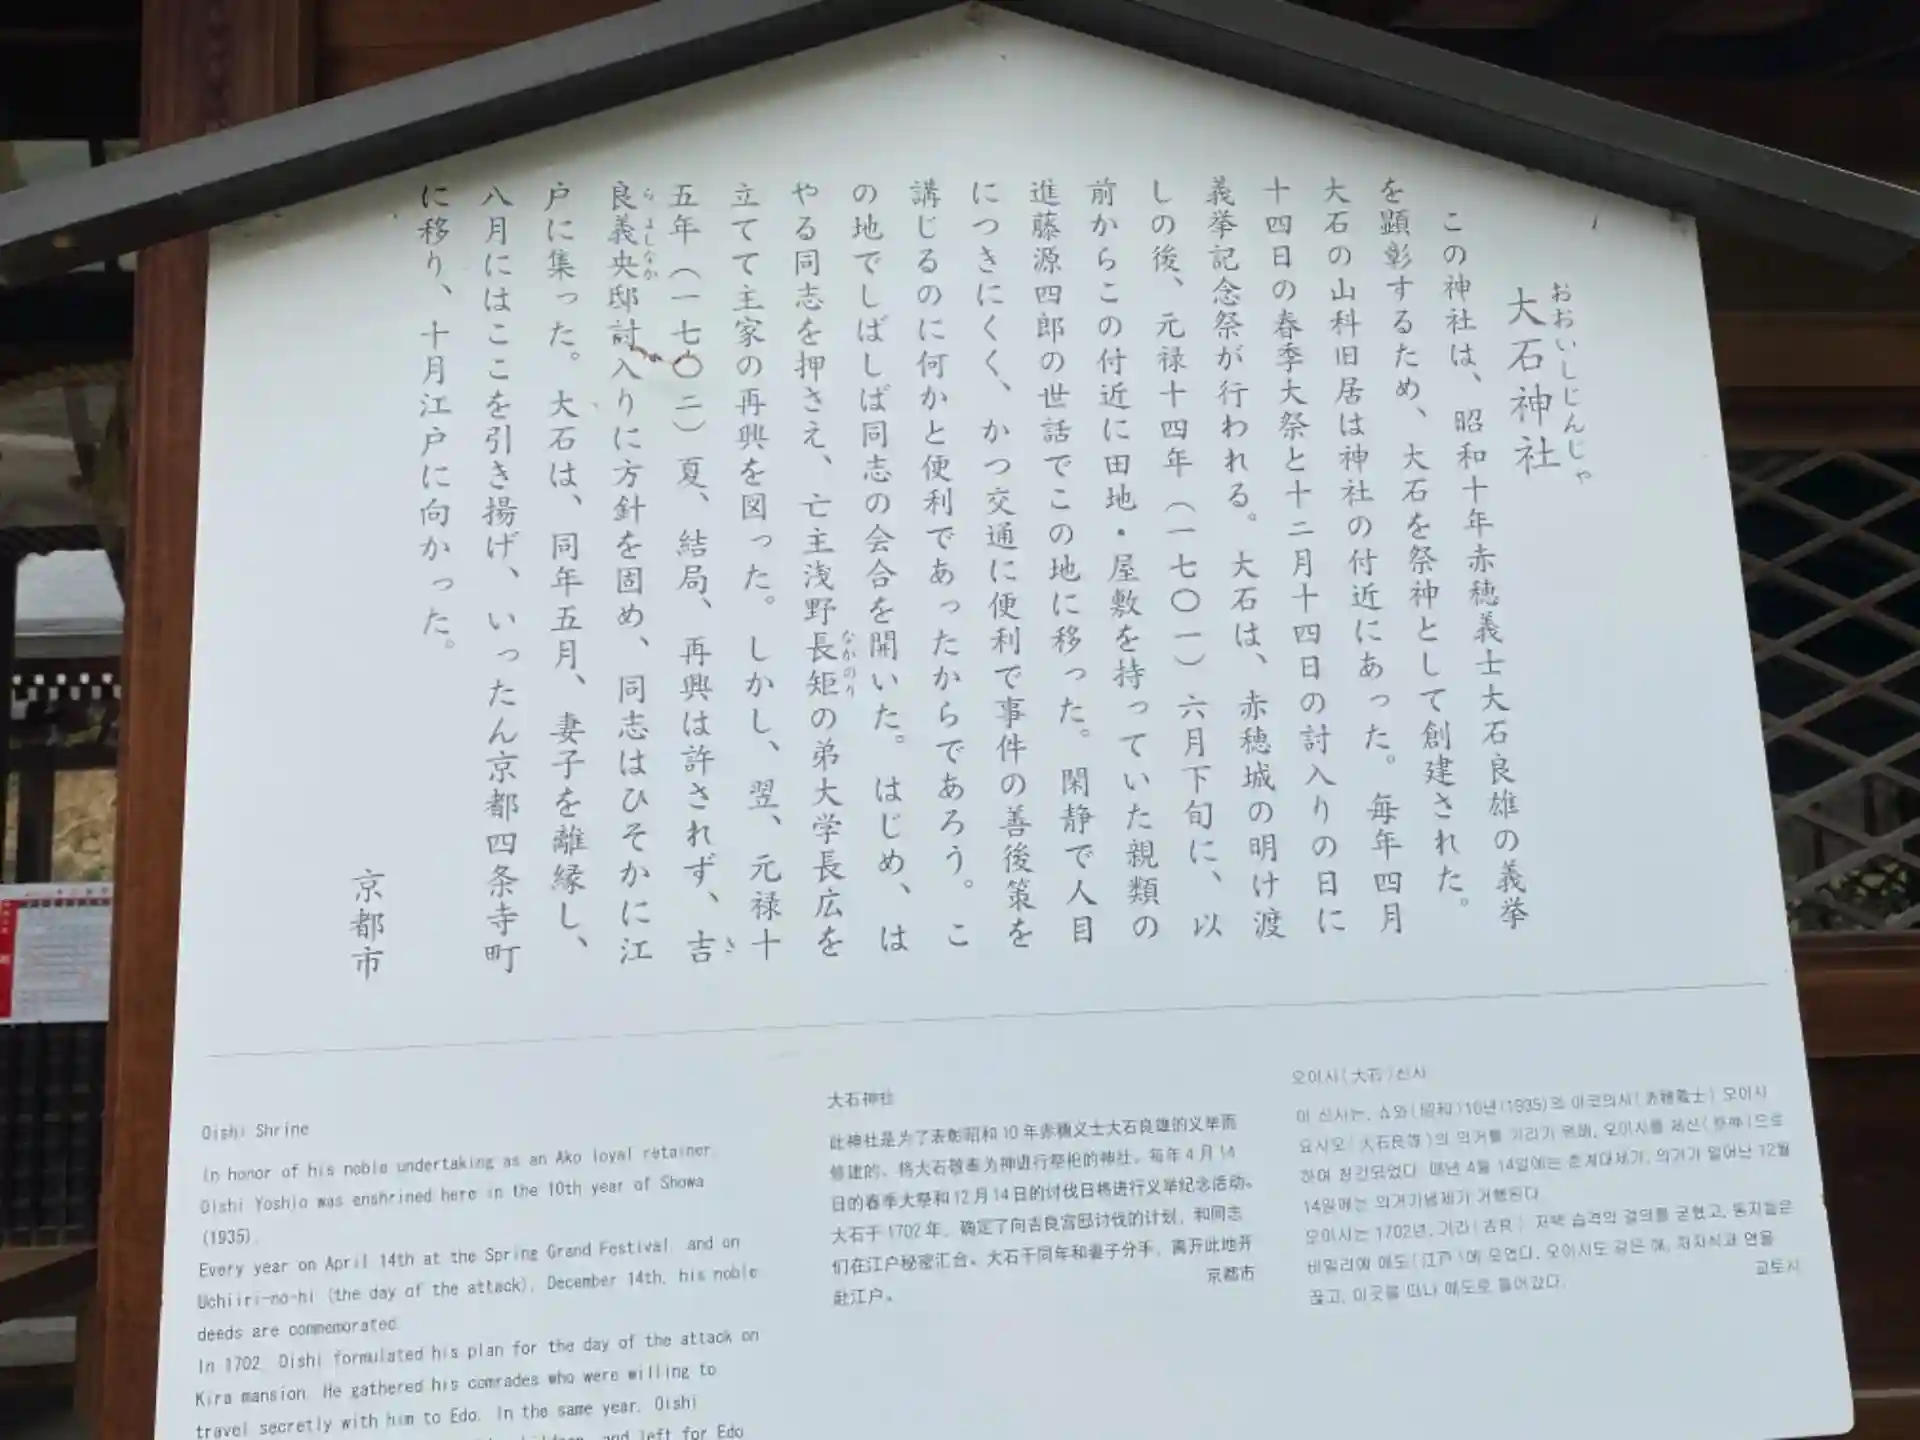 大石神社
おおいしじんじゃ
この神社は、昭和十年赤穂義士大石良雄の義挙
を顕彰するため、大石を祭神として創建された。
大石の山科旧居は神社の付近にあった。毎年四月
十四日の春季大祭と十二月十四日の討入りの日に
義挙記念祭が行われる。大石は、赤穂城の明け渡
しの後、元禄十四年（一七〇一）六月下旬に、以
前からこの付近に田地・屋敷を持っていた親類の
進藤源四郎の世話でこの地に移った。閑静で人目
につきにくく、かつ交通に便利で事件の善後策を
講じるのに何かと便利であったからであろう。こ
の地でしばしば同志の会合を開いた。はじめ、は
やる同志を押さえ、亡主浅野長矩の弟大学長広を
ながのり
立てて主家の再興を図った。しかし、翌、元禄十
五年（一七〇二）夏、結局、再興は許されず、吉
き
良義央邸討入りに方針を固め、同志はひそかに江
らよしなか
戸に集った。大石は、同年五月、妻子を離縁し、
八月にはここを引き揚げ、いったん京都四条寺町
に移り、十月江戸に向かった。
京都市
Oishi Shrine
In honor of his noble undertaking as an Ako loyal retainer,
Oishi Yoshio was enshrined here in the 10th year of Showa
(1935).
Every year on April 14th at the Spring Grand Festival, and on
Uchiiri-no-hi (the day of the attack), December 14th, his noble
deeds are commemorated.
In 1702, Oishi formulated his plan for the day of the attack on
Kira mansion. He gathered his comrades who were willing to
travel secretly with him to Edo. In the same year, Oishi
and left for Edo
大石神社
此神社是为了表彰昭和10年赤穗义士大石良雄的义举而
修建的、将大石敬奉为神进行祭祀的神社。每年4月14
日的春季大祭和12月14日的讨伐日将进行义举纪念活动。
大石于1702年，确定了向吉良宫邸讨伐的计划，和同志
们在江户秘密汇合。大石于同年和妻子分手，离开此地开
赴江户。
京都市
오이시(大石)신사
이 신사는, 쇼와(昭和)10년(1935)의 아코의사(赤穂義士) 오이시
요시오(大石良雄)의 의거를 기리기 위해, 오이시를 제신(祭神)으로
하여 창건되었다. 매년 4월 14일에는 춘계대제가, 의거가 일어난 12월
14일에는 의거기념제가 거행된다.
오이시는 1702년, 기라(吉良) 저택 습격의 결의를 굳혔고, 동지들은
비밀리에 에도(江戸)에 모였다. 오이시도 같은 해, 처자식과 연을
끊고, 이곳을 떠나 에도로 들어갔다.
교토시